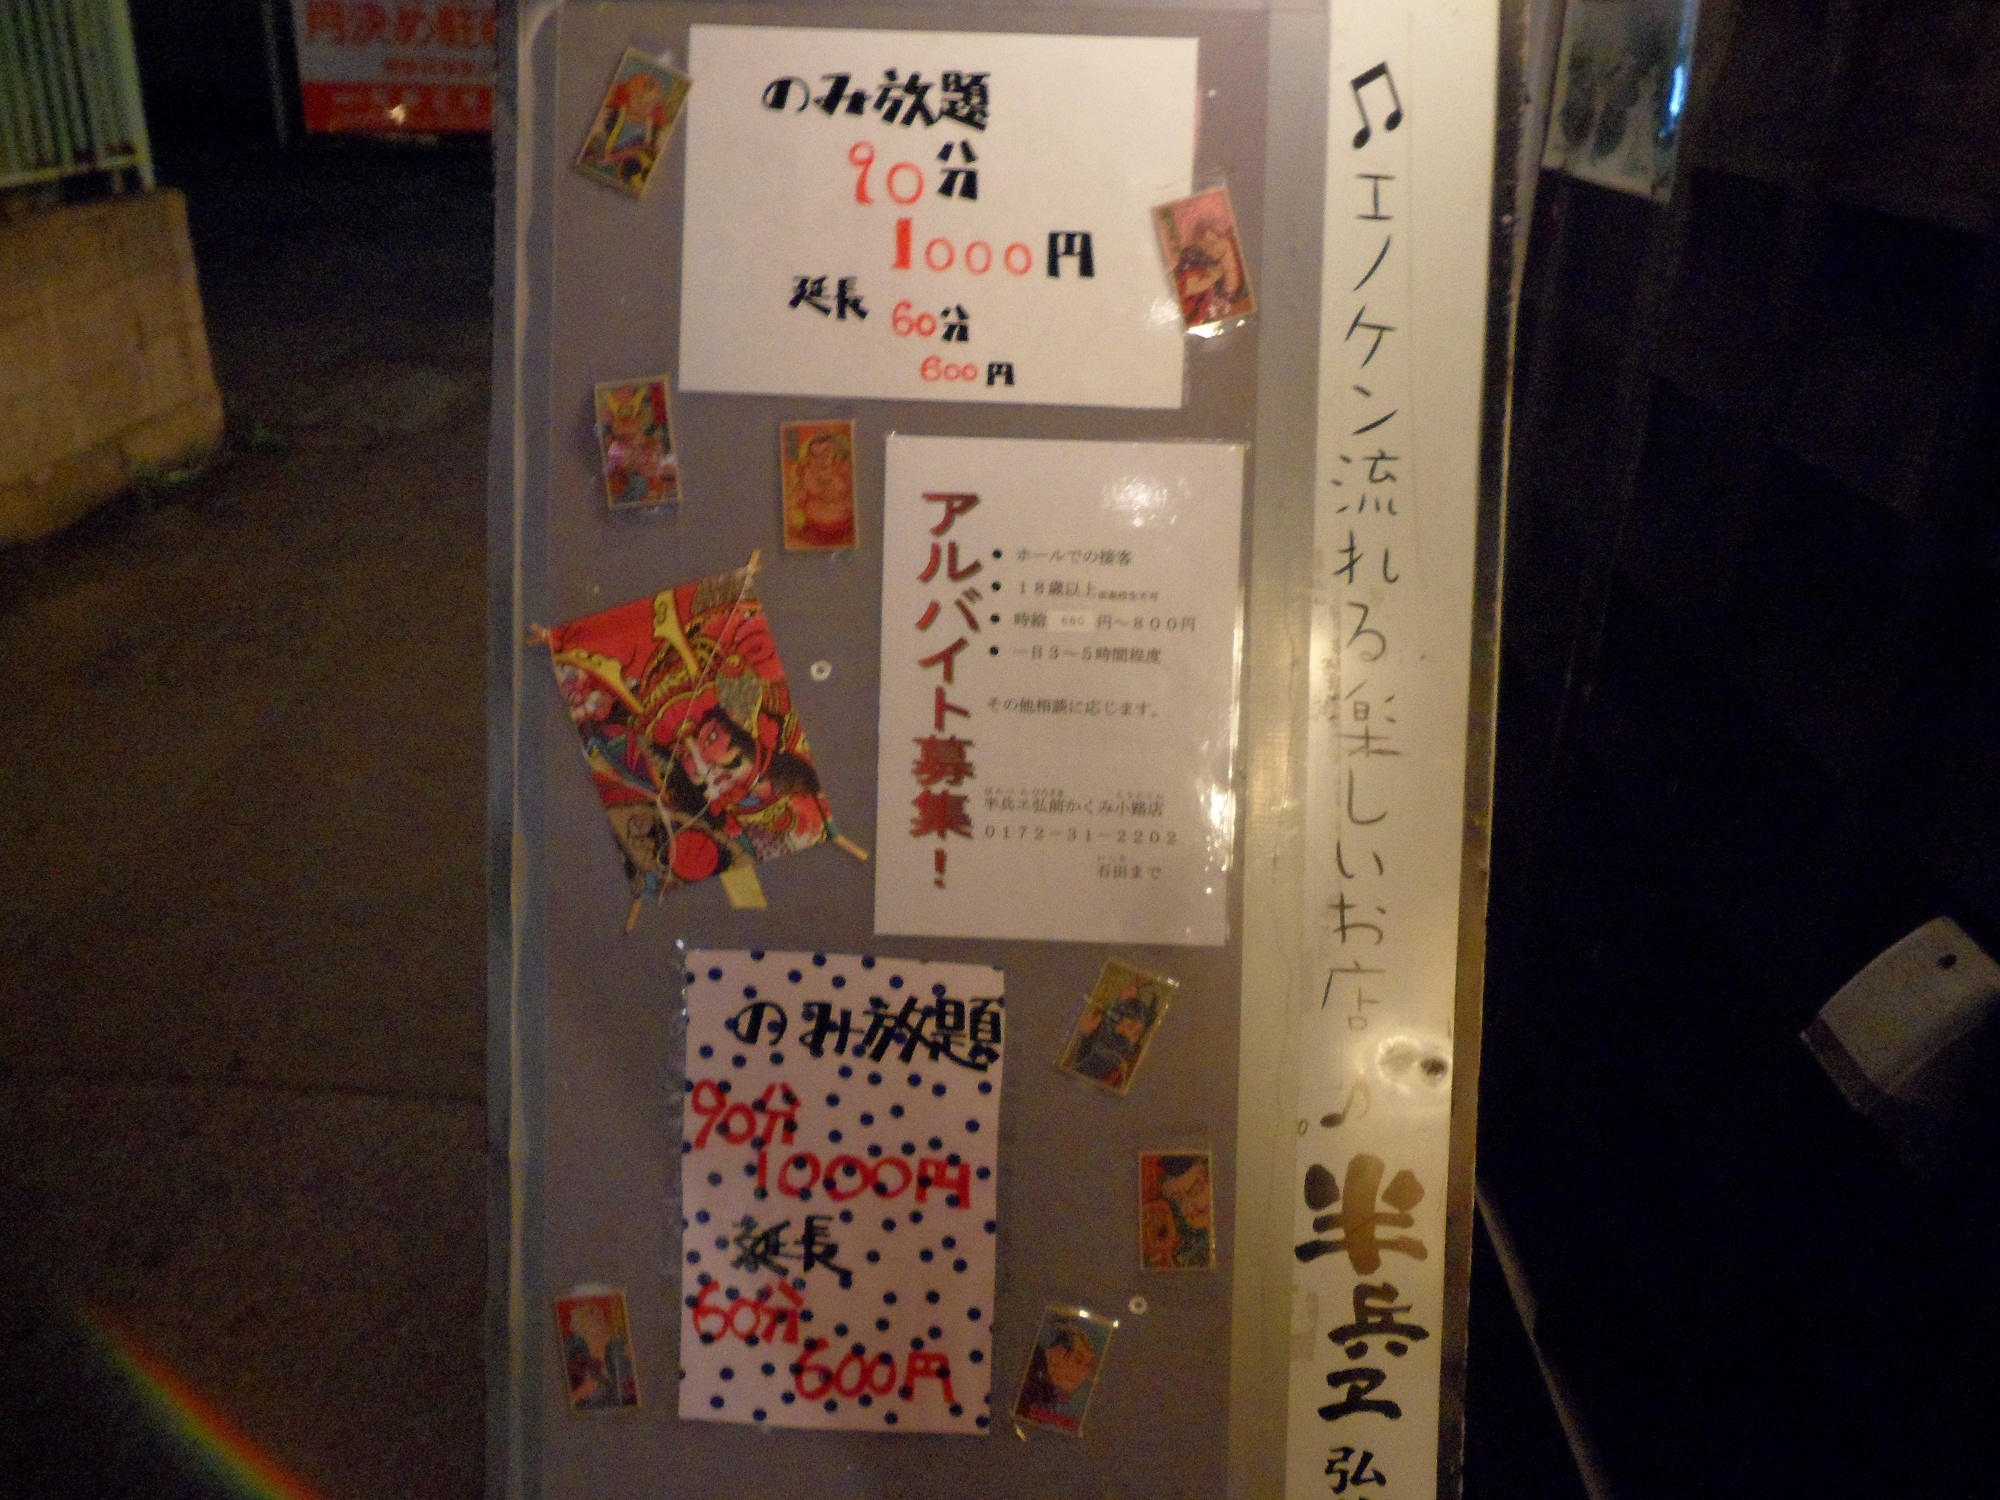 のみ放題
90分
1000円
延長 60分
600円
アルバイト募集！
● ホールでの接客
● 18歳以上
● 時給 660 円～800円
● 一日3～5時間程度
その他相談に応じます。
半兵ヱ弘前かくみ小路店
0172－31－2202
石田まで
のみ放題
90分
1000円
延長
60分
600円
♫エノケン流れる楽しいお店♪
半兵ヱ
弘